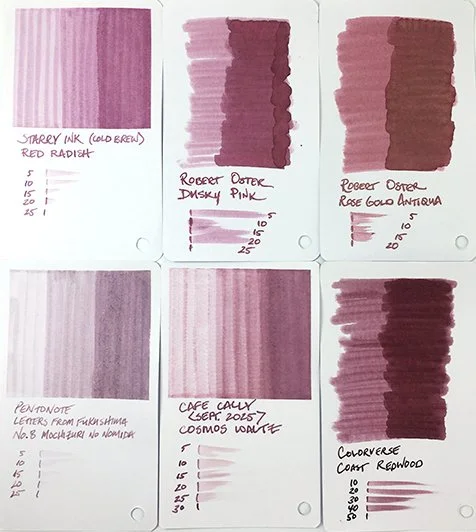 STARRY INK (COLD BREW)
RED RADISH
5
10
15
20
25
ROBERT OSTER
DUSKY PINK
5
10
15
20
25
ROBERT OSTER
ROSE GOLD ANTIQUA
5
10
15
20
PENTONOTE
LETTERS FROM FUKUSHIMA
No. 8 MOCHAZURI NO NOMIDA
5
10
15
20
25
CAFE CALLY
(SEPT. 2025)
COSMOS WALTZ
5
10
15
20
25
30
COLORVERSE
COAST REDWOOD
10
20
30
40
50